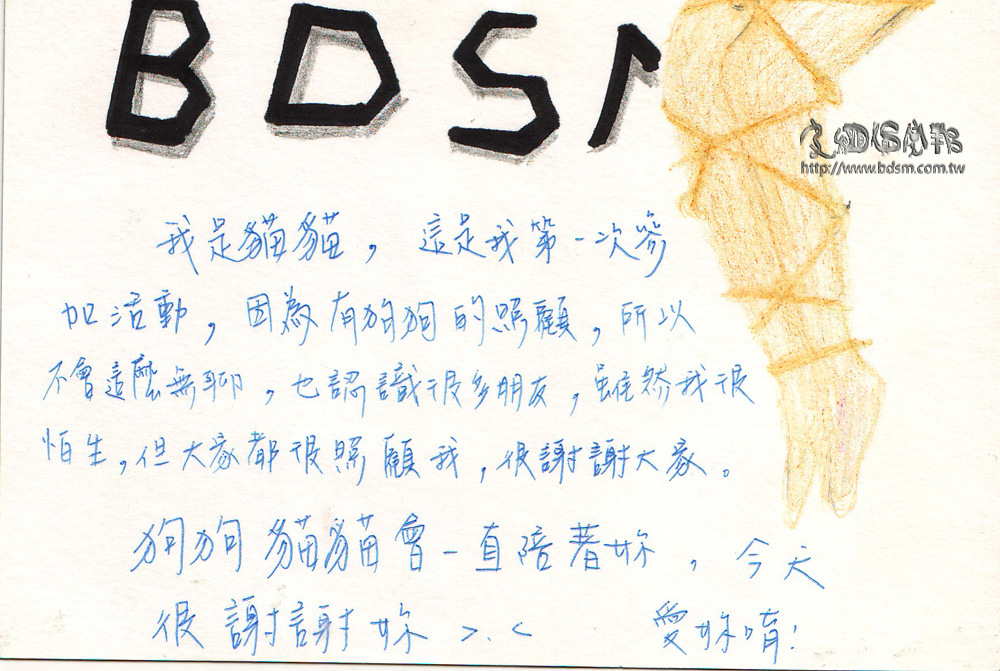 BDSM
http://www.bdsm.com.tw
我是貓貓，這是我第一次參
加活動，因為有狗狗的照顧，所以
不會這麼無聊，也認識很多朋友，雖然我很
怕生，但大家都很照顧我，很謝謝大家。
狗狗貓貓會一直陪著妳，今天
很謝謝妳 >.<  愛妳唷！